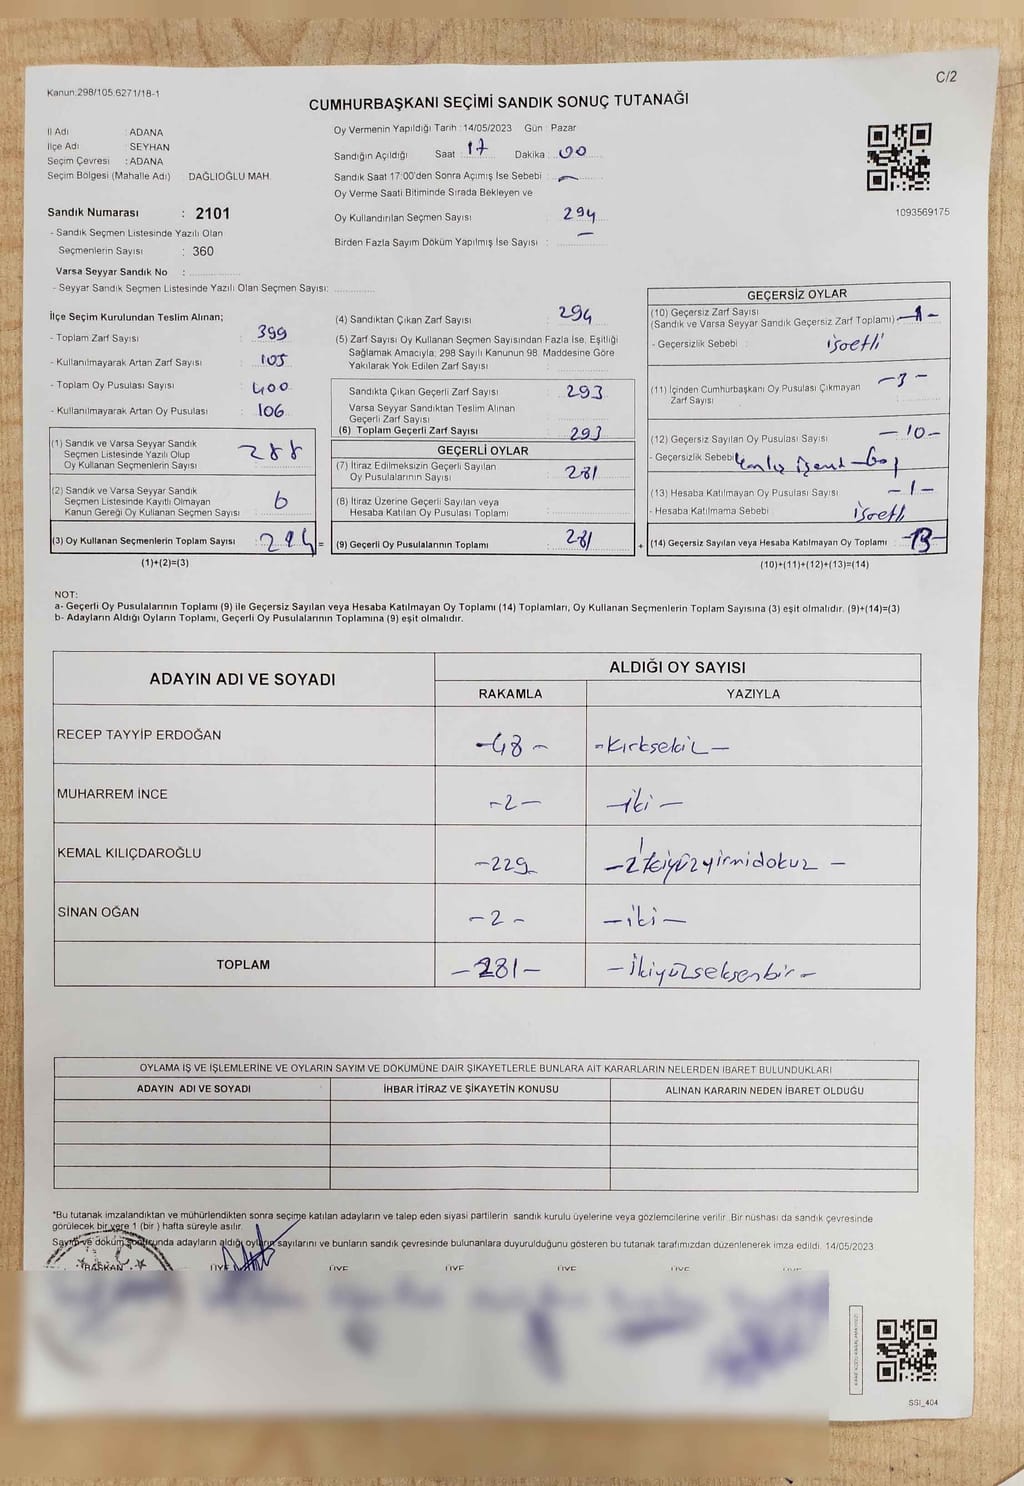 Kanun.298/105.6271/18-1
C/2
CUMHURBAŞKANI SEÇİMİ SANDIK SONUÇ TUTANAĞI
İl Adı : ADANA
İlçe Adı : SEYHAN
Seçim Çevresi : ADANA
Seçim Bölgesi (Mahalle Adı) DAĞLIOĞLU MAH.
Sandık Numarası : 2101
- Sandık Seçmen Listesinde Yazılı Olan
Seçmenlerin Sayısı : 360
Varsa Seyyar Sandık No :
- Seyyar Sandık Seçmen Listesinde Yazılı Olan Seçmen Sayısı:
Oy Vermenin Yapıldığı Tarih : 14/05/2023 Gün : Pazar
Sandığın Açıldığı Saat : 17 Dakika : 00
Sandık Saat 17:00'den Sonra Açımış İse Sebebi : -
Oy Verme Saati Bitiminde Sırada Bekleyen ve
Oy Kullandırılan Seçmen Sayısı : 294
Birden Fazla Sayım Döküm Yapılmış İse Sayısı : -
1093569175
İlçe Seçim Kurulundan Teslim Alınan;
- Toplam Zarf Sayısı : 399
- Kullanılmayarak Artan Zarf Sayısı : 105
- Toplam Oy Pusulası Sayısı : 400
- Kullanılmayarak Artan Oy Pusulası : 106
(1) Sandık ve Varsa Seyyar Sandık
Seçmen Listesinde Yazılı Olup
Oy Kullanan Seçmenlerin Sayısı : 288
(2) Sandık ve Varsa Seyyar Sandık
Seçmen Listesinde Kayıtlı Olmayan
Kanun Gereği Oy Kullanan Seçmen Sayısı : 6
(3) Oy Kullanan Seçmenlerin Toplam Sayısı : 294 =
(1)+(2)=(3)
(4) Sandıktan Çıkan Zarf Sayısı : 294
(5) Zarf Sayısı Oy Kullanan Seçmen Sayısından Fazla İse, Eşitliği
Sağlamak Amacıyla; 298 Sayılı Kanunun 98. Maddesine Göre
Yakılarak Yok Edilen Zarf Sayısı :
Sandıkta Çıkan Geçerli Zarf Sayısı : 293
Varsa Seyyar Sandıktan Teslim Alınan
Geçerli Zarf Sayısı :
(6) Toplam Geçerli Zarf Sayısı : 293
GEÇERLİ OYLAR
(7) İtiraz Edilmeksizin Geçerli Sayılan
Oy Pusulalarının Sayısı : 281
(8) İtiraz Üzerine Geçerli Sayılan veya
Hesaba Katılan Oy Pusulası Toplamı :
(9) Geçerli Oy Pusulalarının Toplamı : 281 +
GEÇERSİZ OYLAR
(10) Geçersiz Zarf Sayısı
(Sandık ve Varsa Seyyar Sandık Geçersiz Zarf Toplamı) : -1-
- Geçersizlik Sebebi : işaetli
(11) İçinden Cumhurbaşkanı Oy Pusulası Çıkmayan
Zarf Sayısı : -
(12) Geçersiz Sayılan Oy Pusulası Sayısı : -10-
- Geçersizlik Sebebi
(13) Hesaba Katılmayan Oy Pusulası Sayısı : -1-
- Hesaba Katılmama Sebebi : işaetli
(14) Geçersiz Sayılan veya Hesaba Katılmayan Oy Toplamı : 13-
(10)+(11)+(12)+(13)=(14)
NOT:
a- Geçerli Oy Pusulalarının Toplamı (9) ile Geçersiz Sayılan veya Hesaba Katılmayan Oy Toplamı (14) Toplamları, Oy Kullanan Seçmenlerin Toplam Sayısına (3) eşit olmalıdır. (9)+(14)=(3)
b- Adayların Aldığı Oyların Toplamı, Geçerli Oy Pusulalarının Toplamına (9) eşit olmalıdır.
ADAYIN ADI VE SOYADI ALDIĞI OY SAYISI
RAKAMLA YAZIYLA
RECEP TAYYİP ERDOĞAN -48- -kırksekiz-
MUHARREM İNCE -2- -iki-
KEMAL KILIÇDAROĞLU -229- -ikiyüzyirmidokuz-
SİNAN OĞAN -2- -iki-
TOPLAM -281- -ikiyüzseksenbir-
OYLAMA İŞ VE İŞLEMLERİNE VE OYLARIN SAYIM VE DÖKÜMÜNE DAİR ŞİKAYETLERLE BUNLARA AİT KARARLARIN NELERDEN İBARET BULUNDUKLARI
ADAYIN ADI VE SOYADI İHBAR İTİRAZ VE ŞİKAYETİN KONUSU ALINAN KARARIN NEDEN İBARET OLDUĞU
*Bu tutanak imzalandıktan ve mühürlendikten sonra seçime katılan adayların ve talep eden siyasi partilerin sandık kurulu üyelerine veya gözlemcilerine verilir. Bir nüshası da sandık çevresinde
görülecek bir yere 1 (bir) hafta süreyle asılır.
Sayım ve döküm sonunda adayların aldığı oyların sayılarını ve bunların sandık çevresinde bulunanlara duyurulduğunu gösteren bu tutanak tarafımızdan düzenlenerek imza edildi. 14/05/2023
BAŞKAN ÜYE ÜYE ÜYE ÜYE ÜYE ÜYE
SSI_404